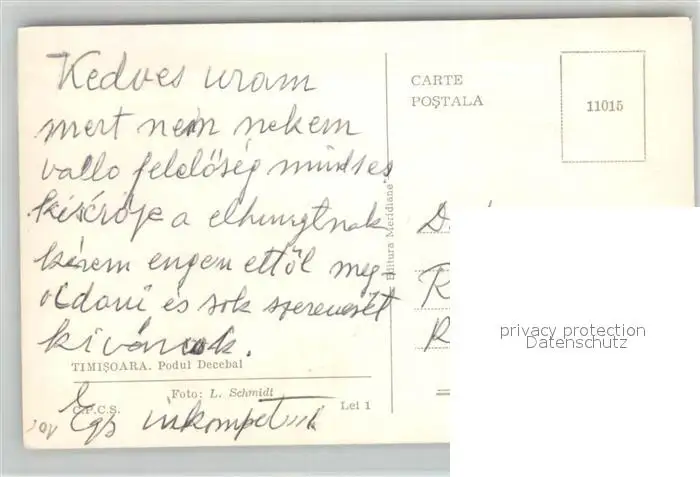 Kedves uram
mert nem nekem
vallo felelőség mindses
kisérője a elhunytnak
kérem engem ettől meg-
oldani és sok szerencsét
kívánok.
Egy inkompetens
CARTE
POŞTALA
11015
Editura Meridiane
TIMIŞOARA. Podul Decebal
Foto: L. Schmidt
C.P.C.S.
Lei 1
privacy protection
Datenschutz